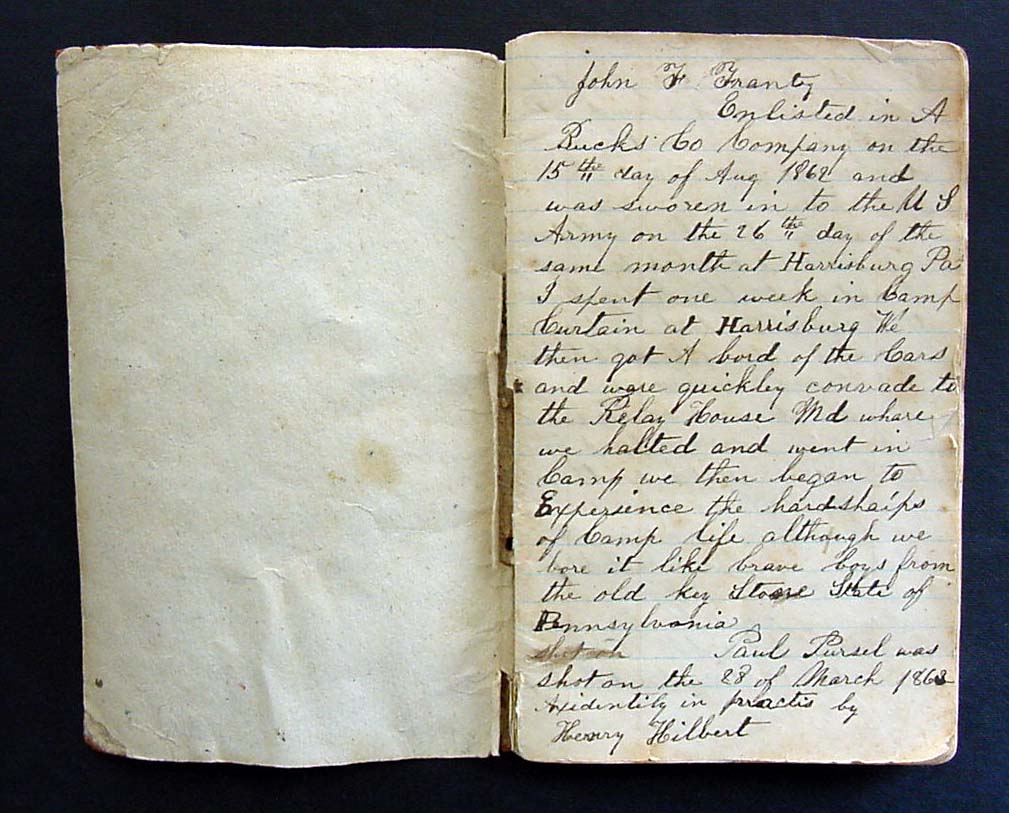 John F Frantz
Enlisted in A
Bucks Co Company on the
15 th day of Aug 1862 and
was sworen in to the U S
Army on the 26 th day of the
same month at Harrisburg Pa
I spent one week in Camp
Curtain at Harrisburg We
then got A bord of the Cars
and ware quickley convade to
the Relay House Md whare
we halted and went in
Camp we then began to
Experience the hardshaips
of Camp life although we
bore it like brave boys from
the old key Stone State of
Pennsylvania
shot on Paul Pursel was
shot on the 28 of March 1863
Axidentily in practis by
Henry Hilbert